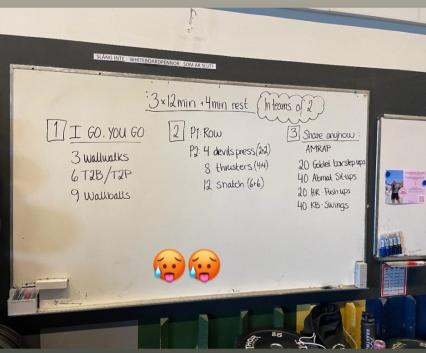 SLÄNG INTE WHITEBOARDPENNOR SOM ÄR SLUT!
3x12min + 4min rest
In teams of 2
1 I GO. YOU GO
3 wallwalks
6 T2B/T2P
9 Wallballs
2 P1: ROW
P2: 4 devils press (2+2)
8 thrusters (4+4)
12 snatch (6+6)
3 Share anyhow:
AMRAP
20 Goblet box step ups
40 Abmat Sit-ups
20 HR Push-ups
40 KB-Swings